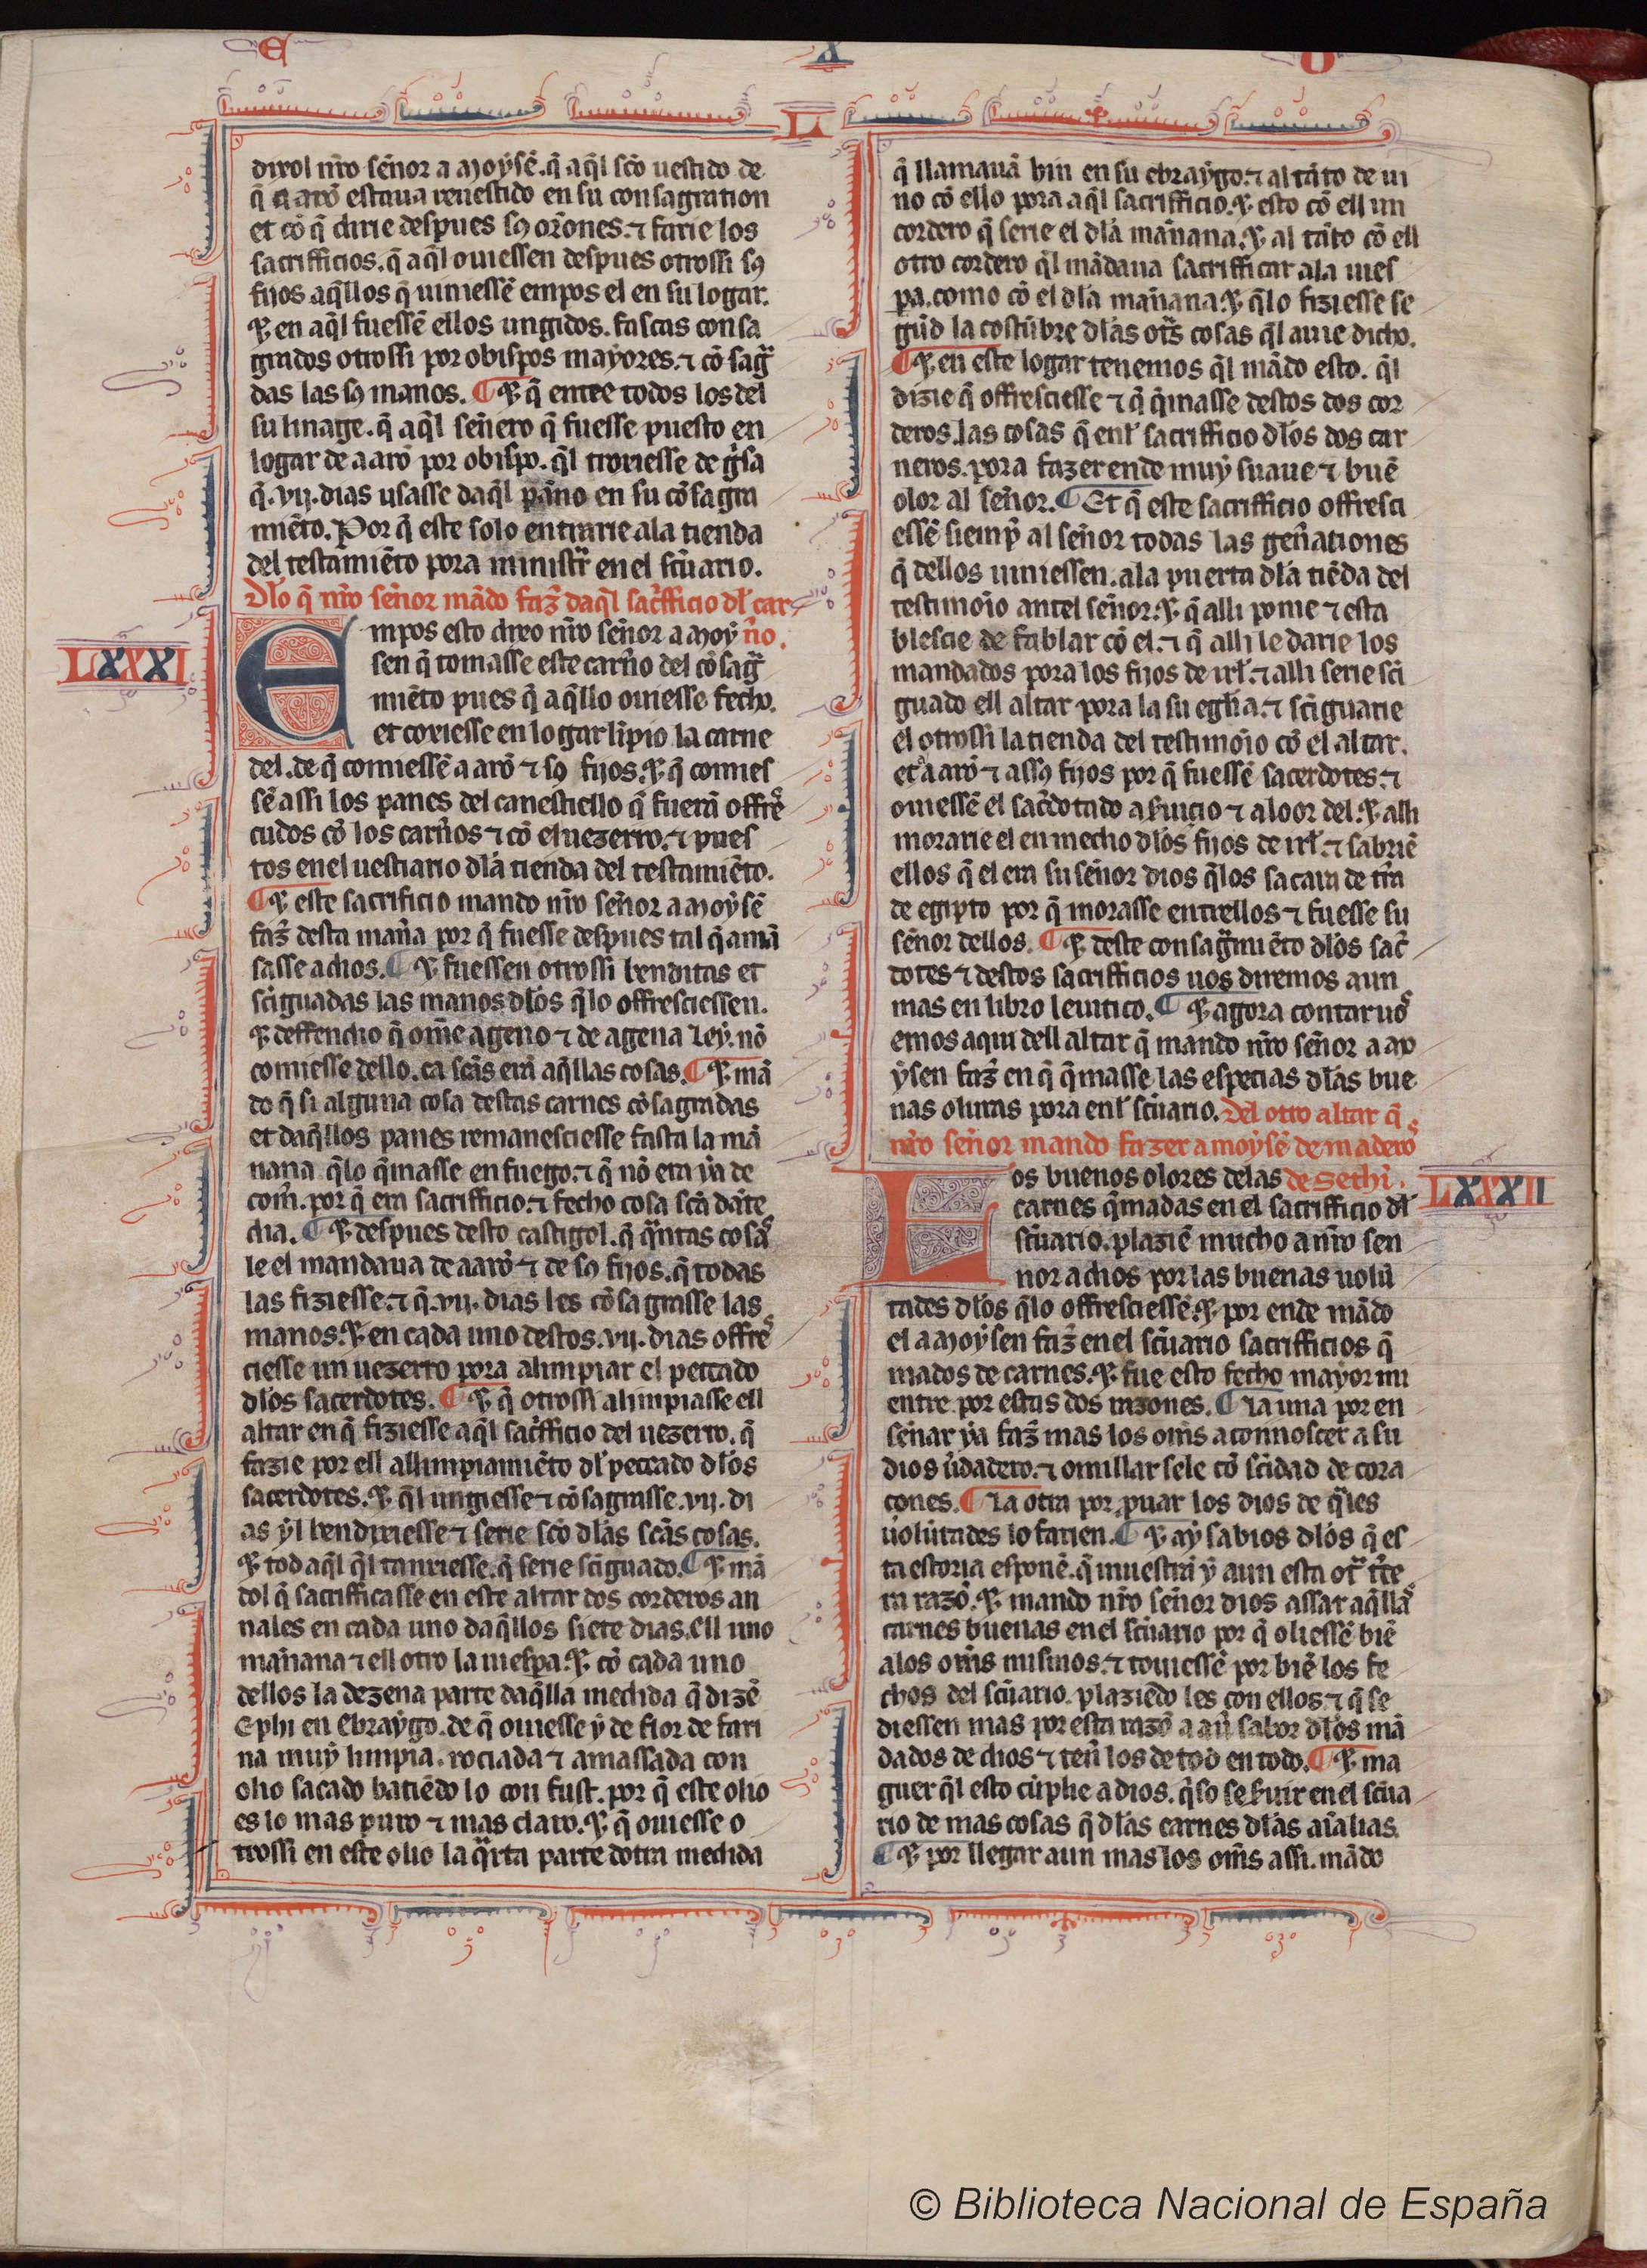 E X O
L
dixol nr̄o sen̄or a moẏsē. q̄ aq̄l sc̄o uestido de
q̄ aarō estaua reuestido en su consagration
et cō q̄ dirie despues sꝯ or̄ones. ⁊ farie los
sacrifficios. q̄ aq̄l ouiessen despues otrossi sꝯ
fijos aq̄llos q̄ uiniessē empos el en su logar.
⁊ en aq̄l fuessē ellos ungidos. fascas consa
grados otrossi por obispos maẏores. ⁊ cō sagᷓ
das las sꝯ manos. ¶ ⁊ q̄ entre todos los del
su linage. q̄ aq̄l sen̄ero q̄ fuesse puesto en
logar de aarō por obispo. q̄l troxiesse de gͥsa
q̄. vij. dias usasse daq̄l pān̄o en su cōsagra
miēto. Por q̄ este solo entrarie ala tienda
del testamiēto pora ministrᷓ en el sc̄uario.
Dlo q̄ nr̄o sen̄or mādo faz̄ daq̄l sac̄fficio dl̄ car
n̄o.
LXXXI
Empos esto dixo nr̄o sen̄or a moẏ
sen q̄ tomasse este carn̄o del cōsagᷓ
miēto pues q̄ aq̄llo ouiesse fecho.
et coxiesse en logar līpio la carne
del. de q̄ comiessē aarō ⁊ sꝯ fijos. ⁊ q̄ comies
sē assi los panes del canestiello q̄ fuerā offrē
cudos cō los carn̄os ⁊ cō el uezerro. ⁊ pues
tos en el uestiario dla tienda del testamiēto.
¶ ⁊ este sacrificio mando nr̄o sen̄or a moẏsē
faz̄ desta man̄a por q̄ fuesse despues tal q̄ amā
sasse a dios. ¶ ⁊ fuessen otrossi benditas et
sc̄iguadas las manos dlos q̄lo offresciessen.
⁊ deffendio q̄ om̄e ageno ⁊ de agena leẏ. nō
comiesse dello. ca sc̄as erā aq̄llas cosas. ¶ ⁊ mā
do q̄ si alguna cosa destas carnes cōsagradas
et daq̄llos panes remanesciesse fasta la mā
nana q̄lo q̄masse en fuego. ⁊ q̄ nō era ẏa de
com̄. por q̄ era sacrifficio. ⁊ fecho cosa sc̄a dāte
dia. ¶ ⁊ despues desto castigol. q̄ qᷓntas cosas
le el mandaua de aarō ⁊ de sꝯ fijos. q̄ todas
las fiziesse. ⁊ q̄. vij. dias les cōsagrasse las
manos. ⁊ en cada uno destos. vij. dias offre
ciesse un uezerro pora alimpiar el peccado
dlos sacerdotes. ¶ ⁊ q̄ otrossi alimpiasse ell
altar en q̄ fiziesse aq̄l sac̄fficio del uezerro. q̄
fazie por ell allimpiamiēto dl̄ peccado dlos
sacerdotes. ⁊ q̄l ungiesse ⁊ cōsagrasse. vij. di
as ẏl bendixiesse ⁊ serie sc̄o dlas sc̄as cosas.
⁊ tod aq̄l q̄l tanxiesse. q̄ serie sc̄iguado. ¶ ⁊ mā
dol q̄ sacrifficasse en este altar dos corderos an
nales en cada uno daq̄llos siete dias. Ell uno
man̄ana ⁊ ell otro la uiespa. ⁊ cō cada uno
dellos la dezena parte daq̄lla medida q̄ dizē
Ephi en Ebraẏgo. de q̄ ouiesse ẏ de flor de fari
na muẏ limpia. rociada ⁊ amassada con
olio sacado batiēdo lo con fust. por q̄ este olio
es lo mas puro ⁊ mas claro. ⁊ q̄ ouiesse o
trossi en este olio la qᷓrta parte dotra medida
q̄ llamauā bin en su ebraẏgo. ⁊ al tāto de ui
no cō ello pora aq̄l sacrifficio. ⁊ esto cō ell un
cordero q̄ serie el dla man̄ana. ⁊ al tāto cō ell
otro cordero q̄l mādaua sacrifficar ala uies
pa. como cō el dla man̄ana. ⁊ q̄lo fiziesse se
gūd la costūbre dlas otᷓs cosas q̄l auie dicho.
¶ ⁊ en este logar tenemos q̄l mādo esto. q̄l
dizie q̄ offresciesse ⁊ q̄ q̄masse destos dos cor
deros. las cosas q̄ enl̄ sacrifficio dlos dos car
neros. pora fazer ende muẏ suaue ⁊ buē
olor al sen̄or. ¶ Et q̄ este sacrifficio offresci
essē siemp̄ al sen̄or todas las gen̄ationes
q̄ dellos uiniessen. ala puerta dla tiēda del
testimoīo antel sen̄or. ⁊ q̄ alli pornie ⁊ esta
blescie de fablar cō el. ⁊ q̄ alli le darie los
mandados pora los fijos de irl̄. ⁊ alli serie sc̄i
guado ell altar pora la su egl̄ia. ⁊ sc̄iguarie
el otrossi la tienda del testimoīo cō el altar.
et a aarō ⁊ assꝯ fijos por q̄ fuessē sacerdotes. ⁊
ouiessē el sac̄dotado a s̄uicio ⁊ a loor del. ⁊ alli
morarie el en medio dlos fijos de irl̄. ⁊ sabriē
ellos q̄ el era su sen̄or dios q̄los sacara de tr̄ra
de egipto por q̄ morasse entrellos ⁊ fuesse su
sen̄or dellos. ¶ ⁊ deste consagᷓmiēto dlos sac̄
dotes ⁊ destos sacrifficios uos diremos aun
mas en libro leuitico. ¶ ⁊ agora contar uos
emos aqui dell altar q̄ mando nr̄o sen̄or a mo
ẏsen faz̄ en q̄ q̄masse las especias dlas bue
nas olituras pora enl̄ sc̄uario. Del otro altar q̄
nr̄o sen̄or mando fazer a moẏsē de maderos
de Sethī.
LXXXII
Los buenos olores delas
carnes q̄madas en el sacrifficio dl̄
sc̄uario. plaziē mucho a nr̄o sen
nor a dios por las buenas uolū
tades dlos q̄lo offresciessē. ⁊ por ende mādo
el a moẏsen faz̄ en el sc̄uario sacrifficios q̄
mados de carnes. ⁊ fue esto fecho mayor mi
entre por estas dos razones. ¶ La una por en
sen̄ar ẏa faz̄ mas los om̄s a connoscer a su
dios ūdadero. ⁊ omillar sele cō sc̄idad de cora
cones. ¶ La otra por puar los dios de q̄les
uolūtades lo farien. ¶ ⁊ aẏ sabios dlos q̄ es
ta estoria esponē. q̄ muestrā ẏ aun esta otᷓ t̄ce
ra razō. ⁊ mando nr̄o sen̄or dios assar aq̄llas
carnes buenas en el sc̄uario por q̄ oliessē biē
alos om̄s mismos. ⁊ touiessē por biē los fe
chos del sc̄uario. plaziēdo les con ellos ⁊ q̄ se
diessen mas por esta razō a au̅ sabor dlos mā
dados de dios ⁊ ten̄ los de todo en todo. ¶ ⁊ ma
guer q̄l esto cūplie a dios. q̄so se s̄uir en el sc̄ua
rio de mas cosas q̄ dlas carnes dlas aīalias.
¶ ⁊ por llegar aun mas los om̄s assi. mādo
© Biblioteca Nacional de España